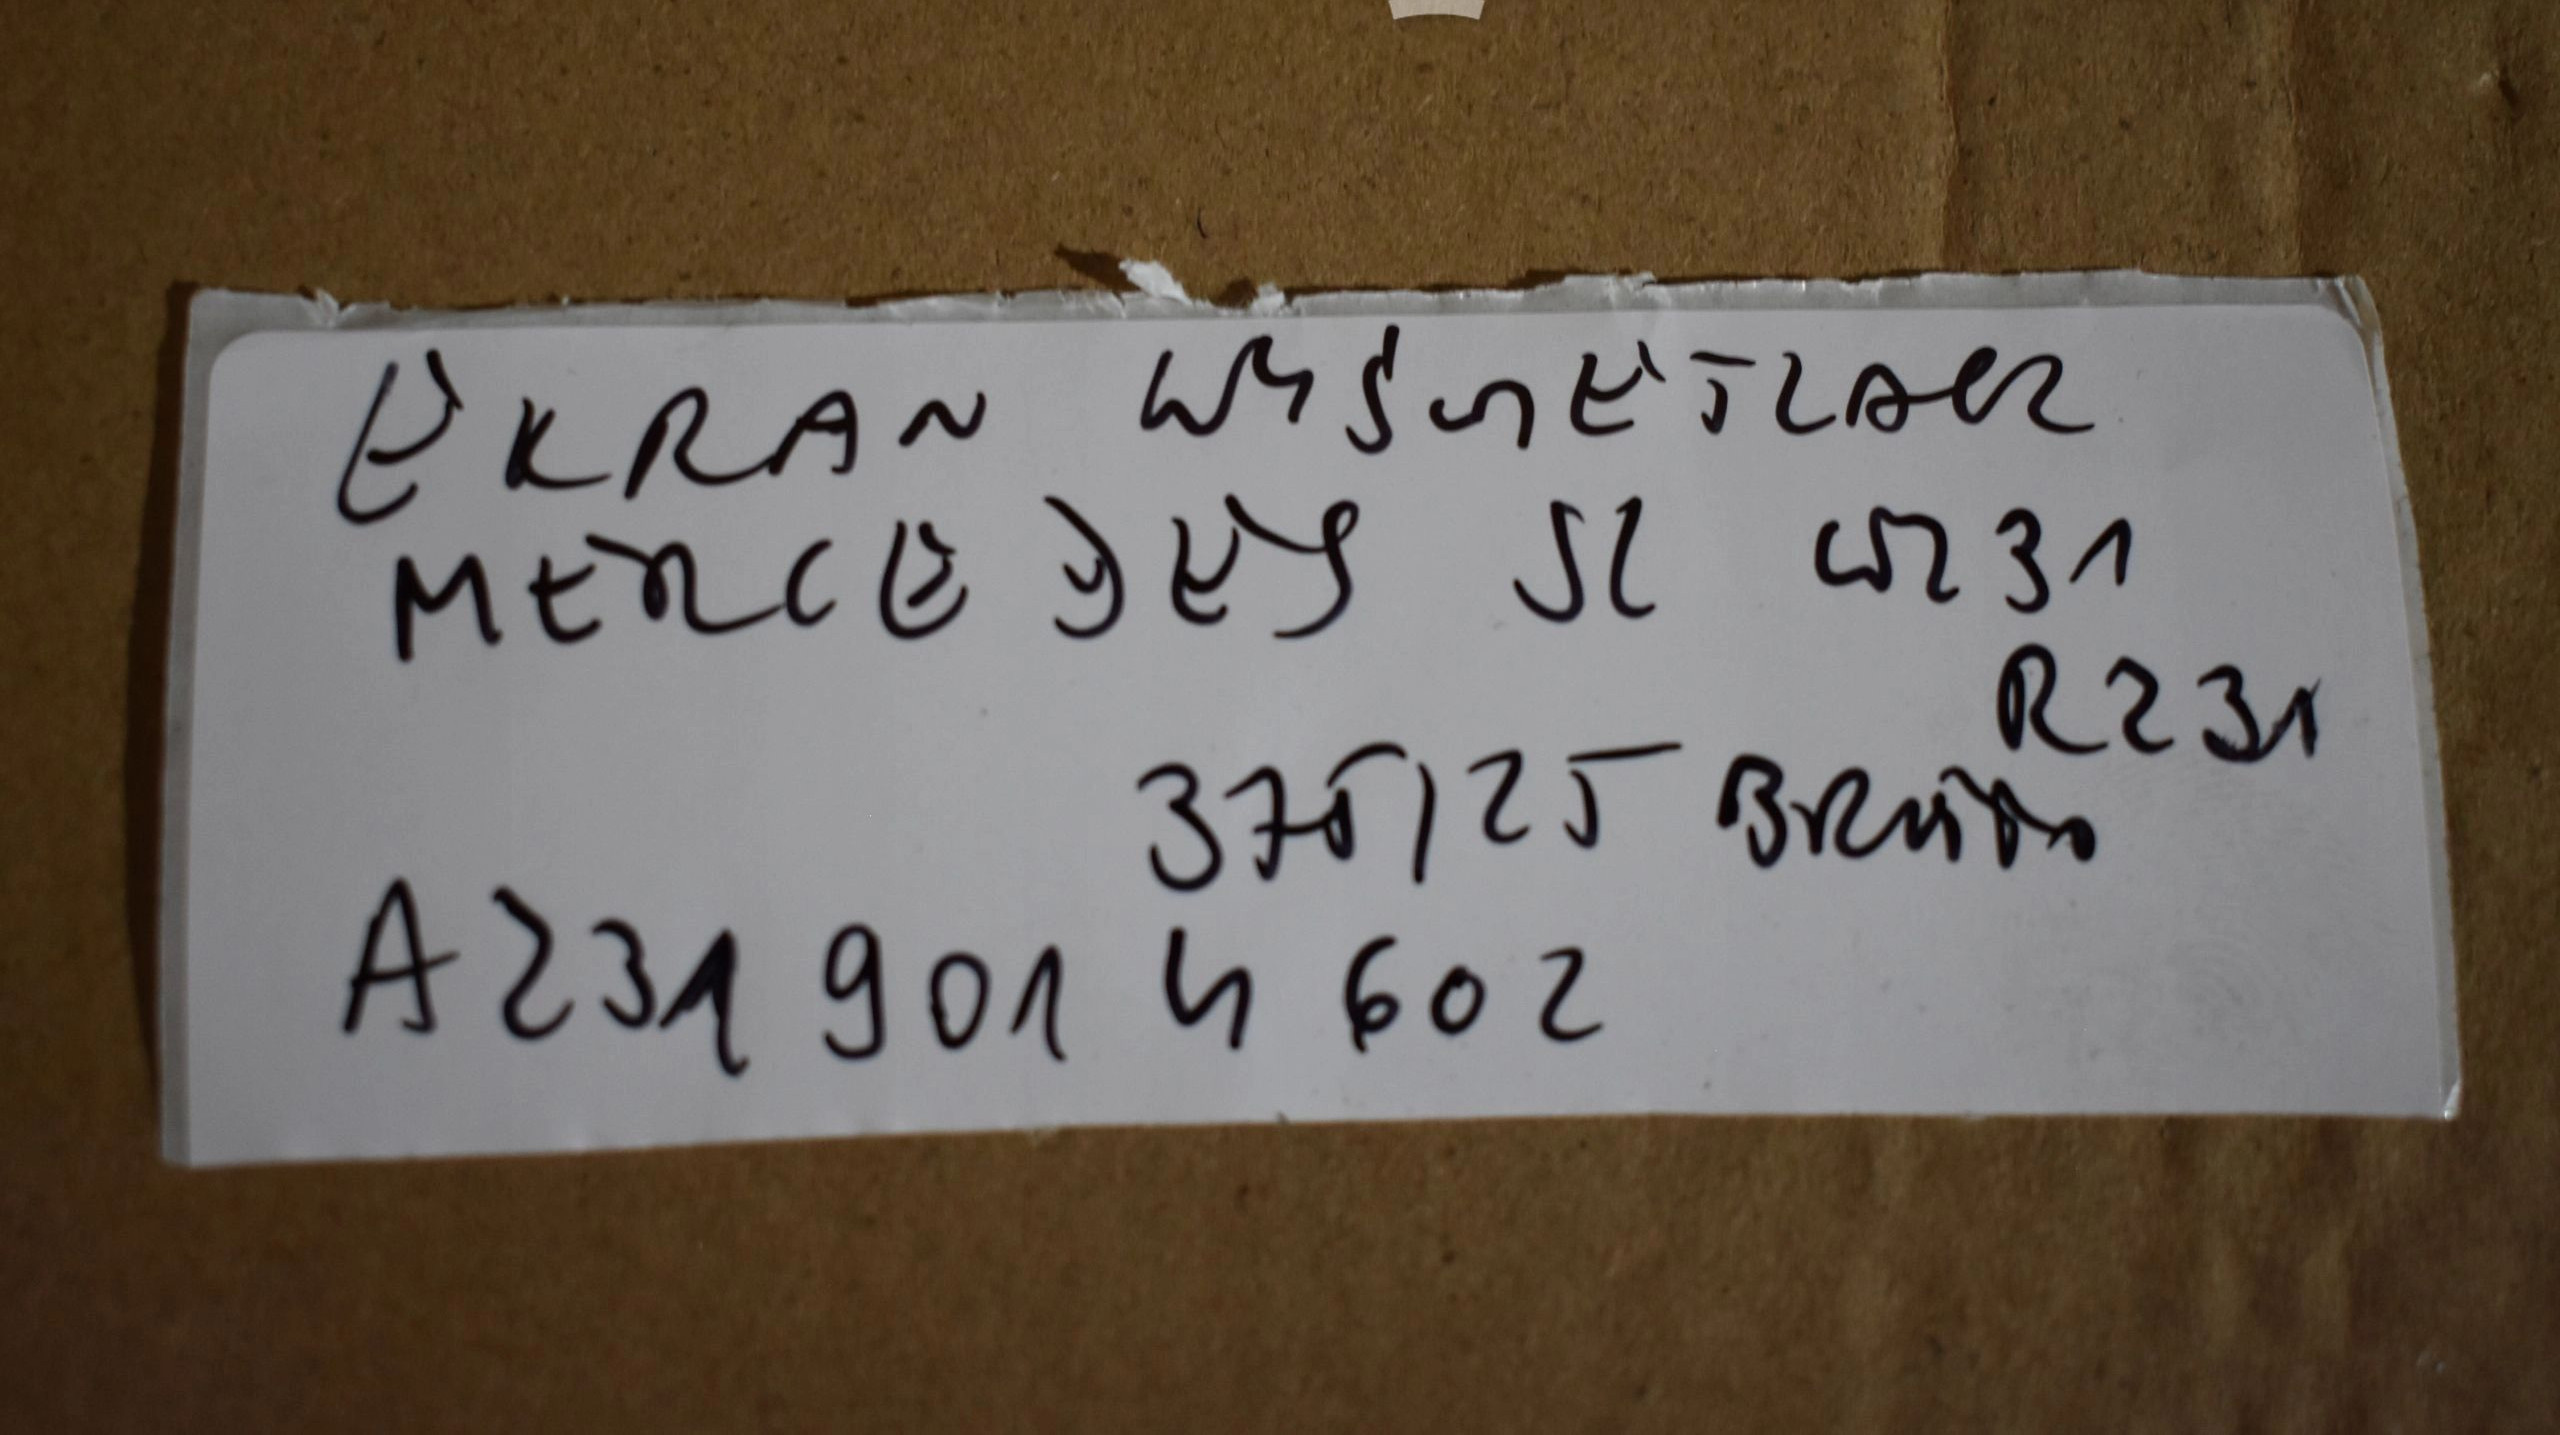 EKRAN WYŚWIETLACZ
MERCEDES SL W231
R231
375,25 BRUTTO
A231 901 4 602